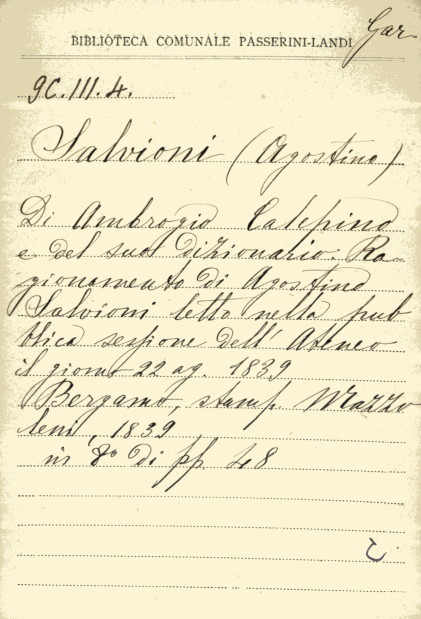 Gar.
BIBLIOTECA COMUNALE PASSERINI-LANDI
9C.III.4.
Salvioni (Agostino)
Di Ambrogio Calepino
e del suo dizionario. Ra-
gionamento di Agostino
Salvioni letto nella pub
blica sessione dell' Ateneo
il giorno 22 ag. 1839
Bergamo, stamp. Mazzo
leni, 1839
in 8° di pp. 48